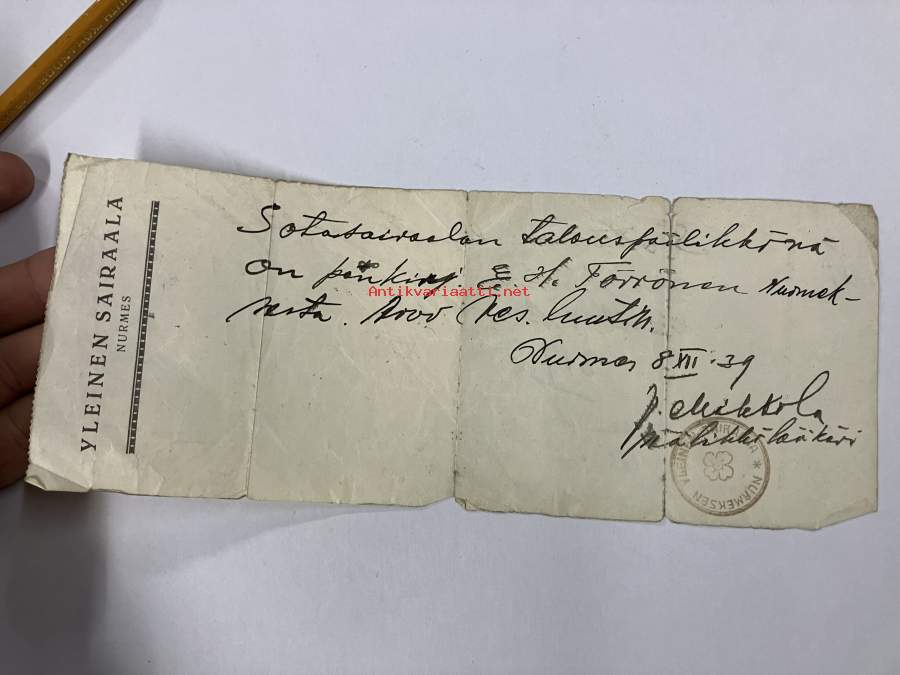 YLEINEN SAIRAALA
NURMES
Sotasairaalan talouspäälikkönä
on pankinj. E. H. Törrönen Nurmek-
sesta. Arvo res. luutn.
Nurmes 8 XII.39
J. Mikkola
päälikkölääkäri
NURMEKSEN YLEINEN SAIRAALA *
Antikvariaatti.net